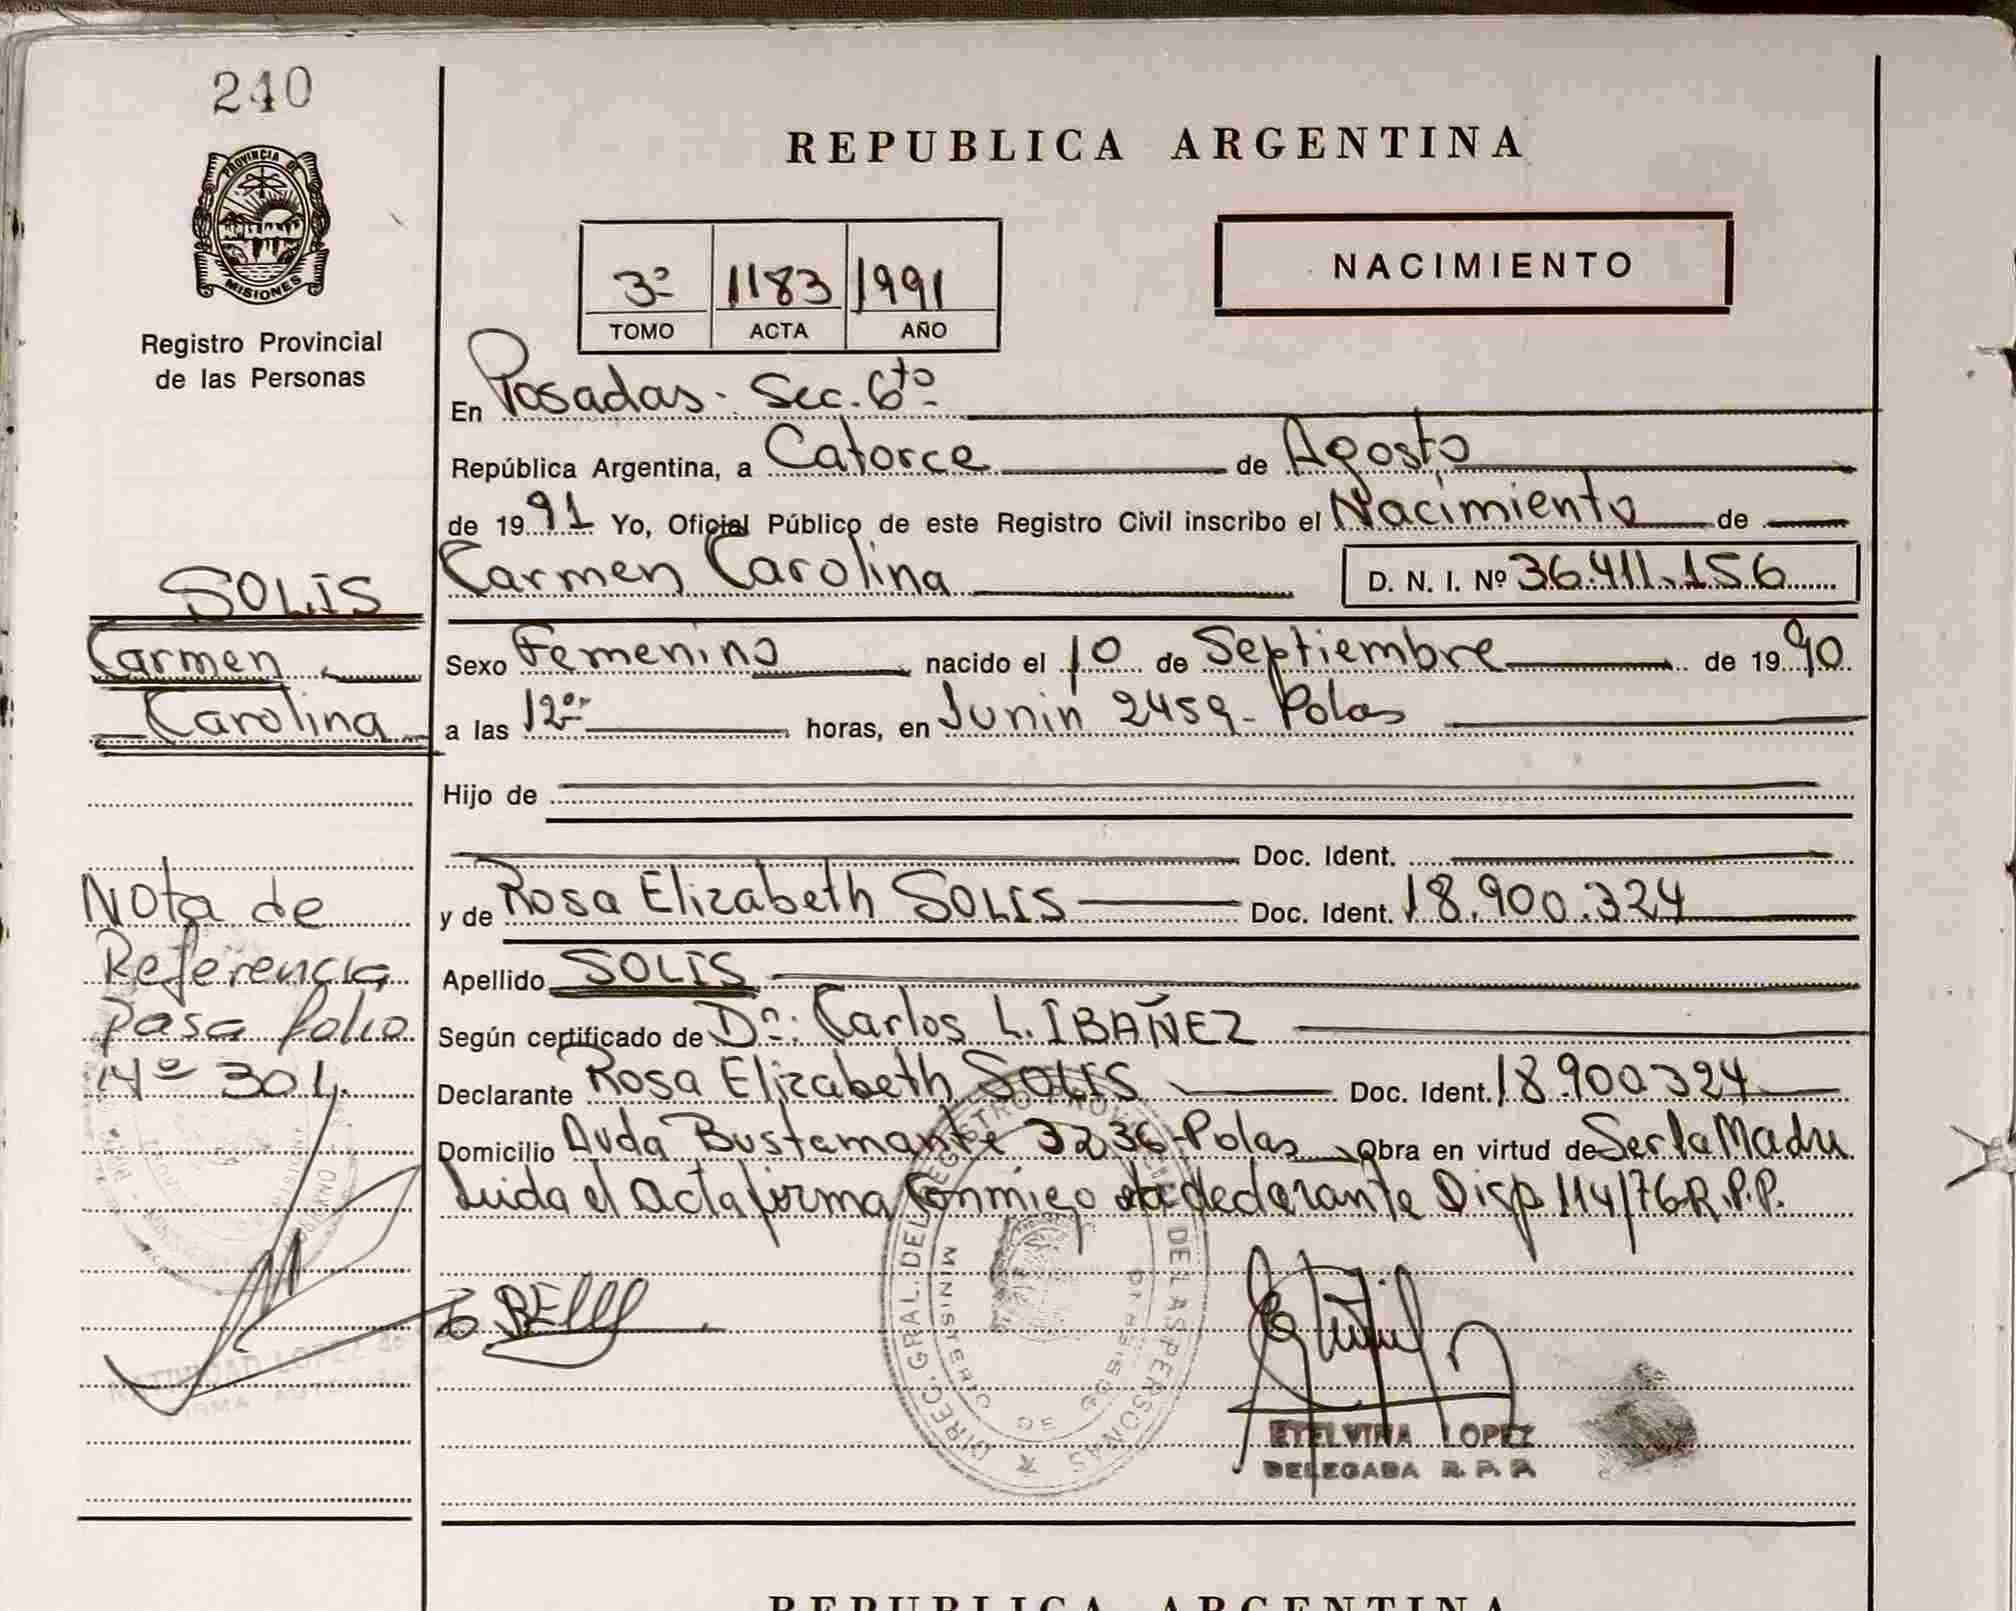 240
PROVINCIA DE
MISIONES
Registro Provincial
de las Personas
REPUBLICA ARGENTINA
3º 1183 1991
TOMO ACTA AÑO
NACIMIENTO
En Posadas. Sec. 6to
República Argentina, a Catorce de Agosto
de 1991 Yo, Oficial Público de este Registro Civil inscribo el Nacimiento de
Carmen Carolina D. N. I. Nº 36.411.156
SOLIS
Carmen
Carolina
Sexo Femenino nacido el 10 de Septiembre de 1990
a las 12 horas, en Junin 2459- Pdas
Hijo de
Doc. Ident.
y de Rosa Elizabeth SOLIS Doc. Ident. 18.900.324
Apellido SOLIS
Según certificado de Dn: Carlos L. IBAÑEZ
Declarante Rosa Elizabeth SOLIS Doc. Ident. 18.900324
Domicilio Avda Bustamante 3236-Pdas Obra en virtud de Ser la Madre
Leida el Acta firma Conmigo la declarante Disp 114/76 R.P.P.
Nota de
Referencia
pasa folio
Nº 301.
DIREC. GRAL. DEL REGISTRO PROVINCIAL DE LAS PERSONAS
MINISTERIO DE GOBIERNO
ETELVINA LOPEZ
DELEGADA R. P. P.
LOPEZ de
FIRMA AUTORIZADA
REPUBLICA ARGENTINA